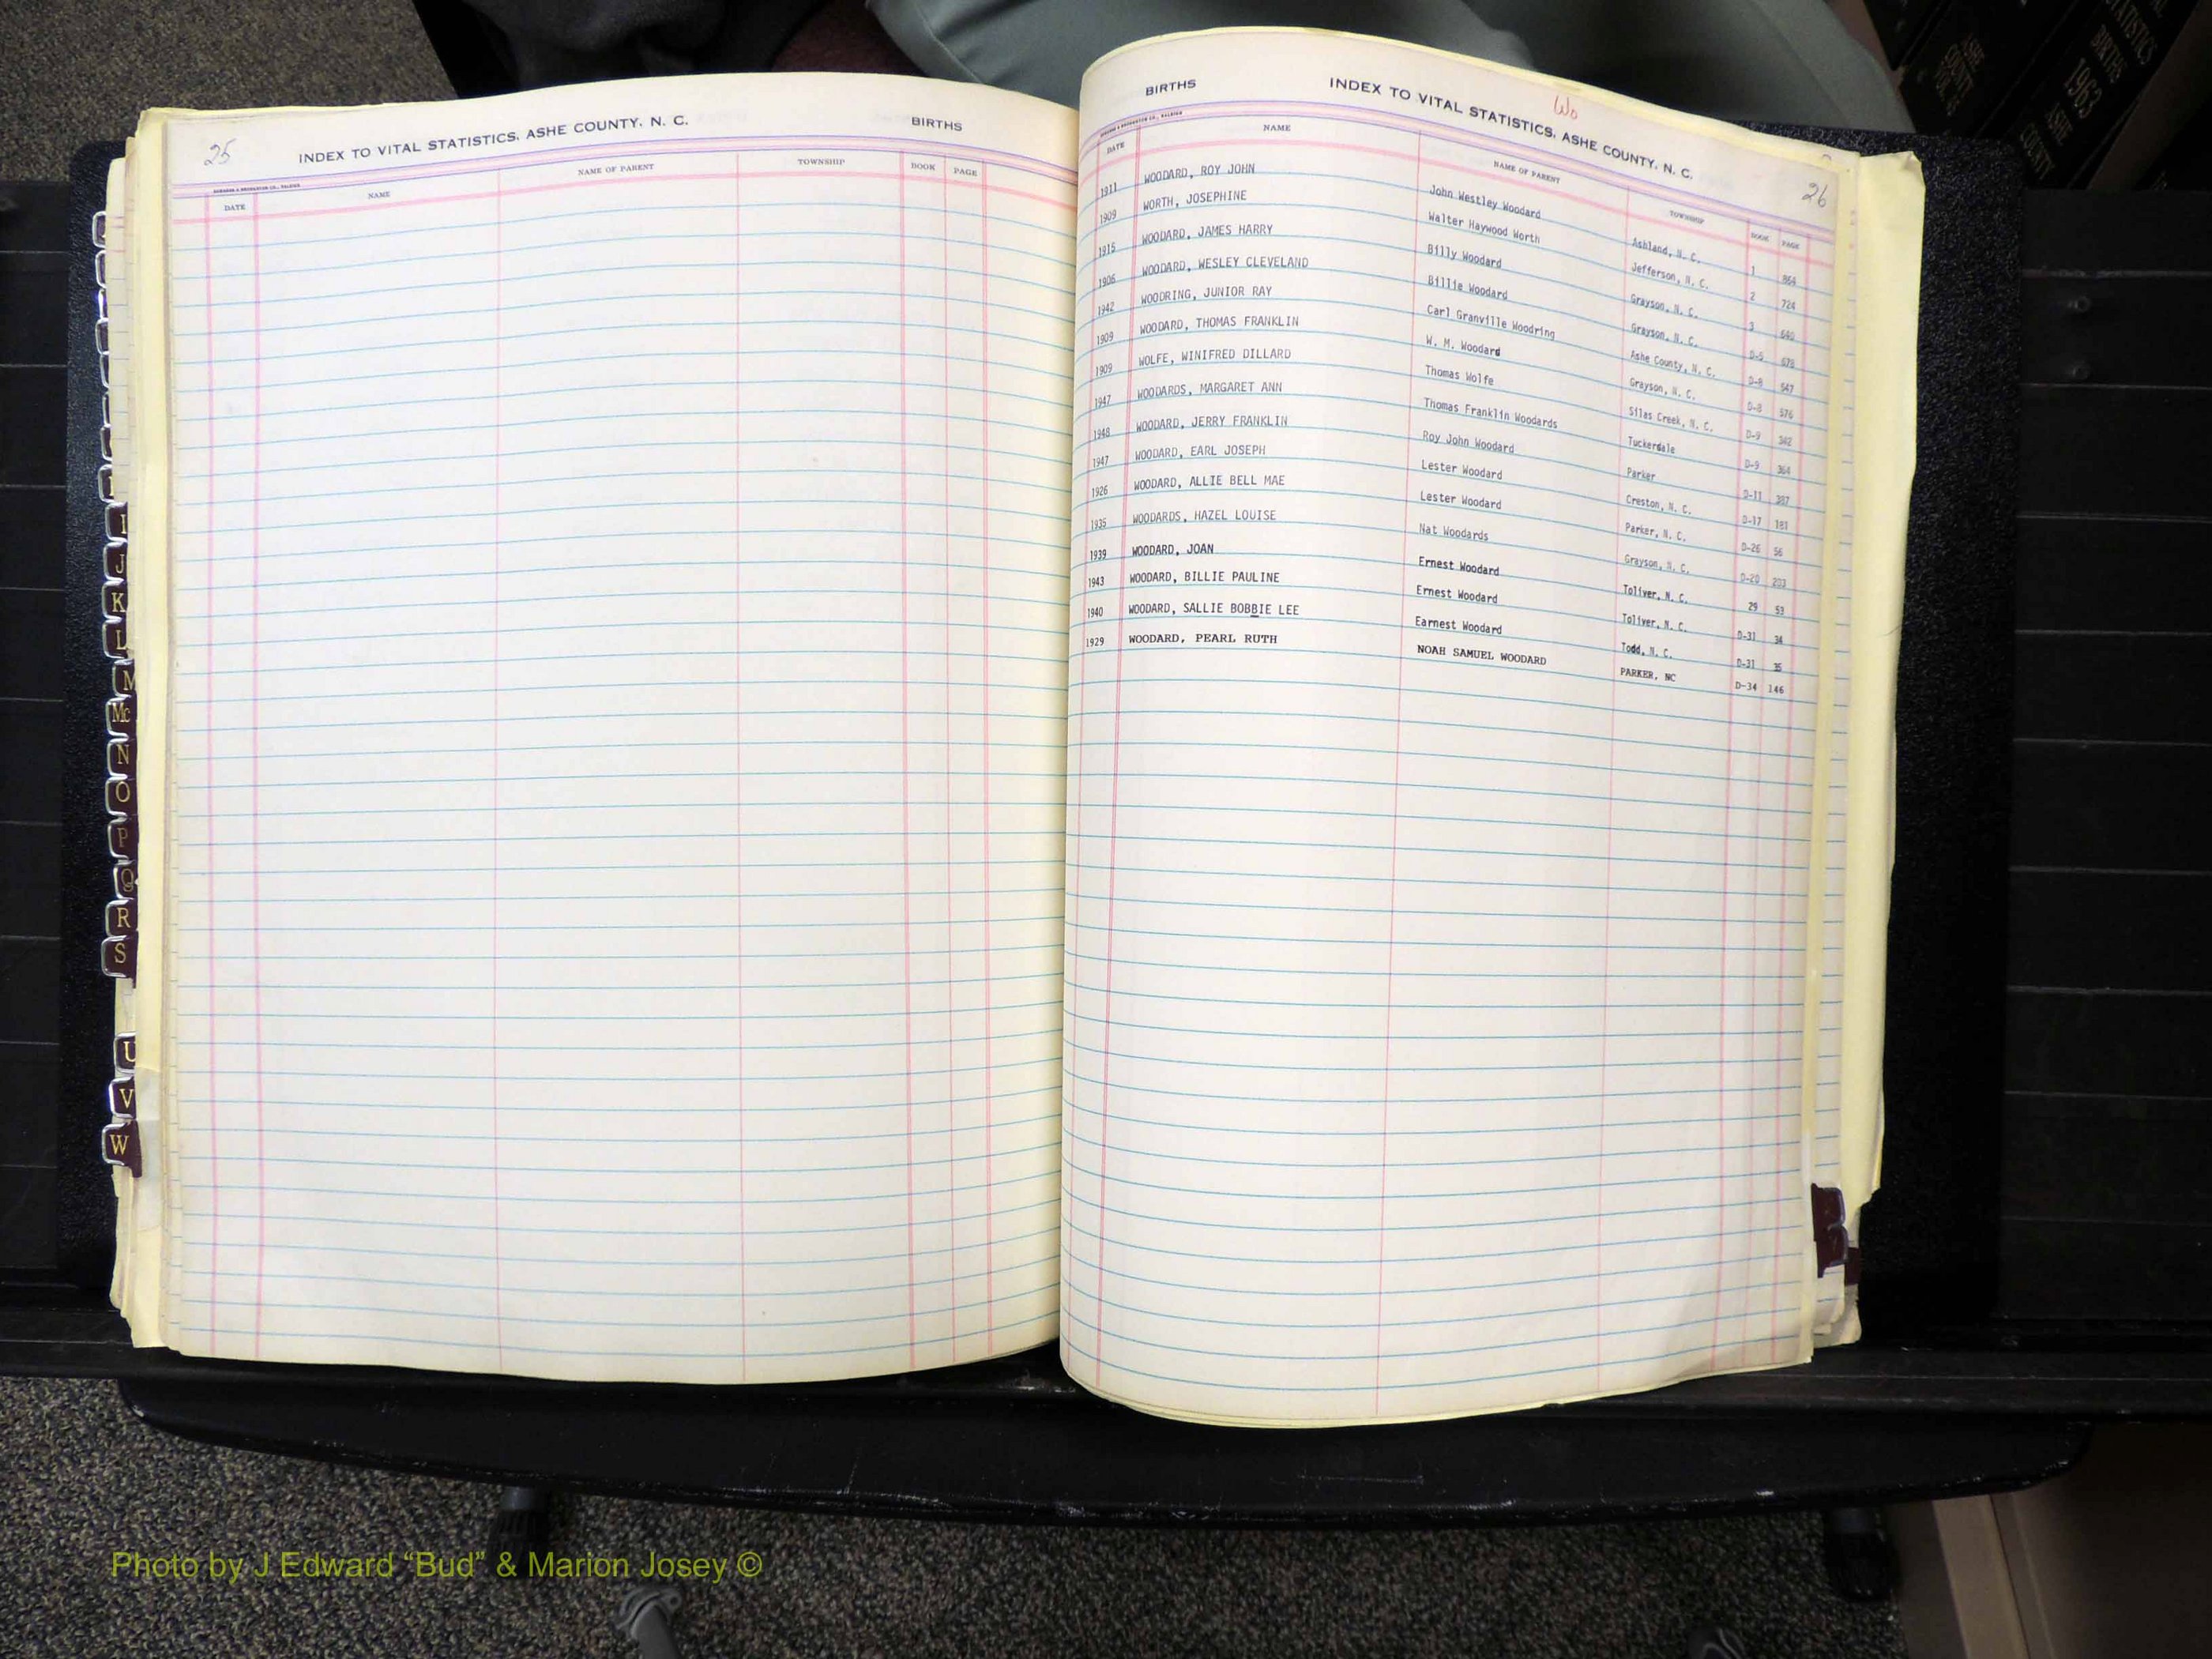 25
INDEX TO VITAL STATISTICS, ASHE COUNTY, N. C. BIRTHS
DATE NAME NAME OF PARENT TOWNSHIP BOOK PAGE
BIRTHS INDEX TO VITAL STATISTICS, ASHE COUNTY, N. C.
Wo
26
DATE NAME NAME OF PARENT TOWNSHIP BOOK PAGE
1911 WOODARD, ROY JOHN John Westley Woodard Ashland, N. C. 1 864
1909 WORTH, JOSEPHINE Walter Haywood Worth Jefferson, N. C. 2 724
1915 WOODARD, JAMES HARRY Billy Woodard Grayson, N. C. 3 640
1906 WOODARD, WESLEY CLEVELAND Billie Woodard Grayson, N. C. D-5 678
1942 WOODRING, JUNIOR RAY Carl Granville Woodring Ashe County, N. C. D-8 547
1909 WOODARD, THOMAS FRANKLIN W. M. Woodard Grayson, N. C. D-8 576
1909 WOLFE, WINIFRED DILLARD Thomas Wolfe Silas Creek, N. C. D-9 342
1947 WOODARDS, MARGARET ANN Thomas Franklin Woodards Tuckerdale D-9 364
1948 WOODARD, JERRY FRANKLIN Roy John Woodard Parker D-11 387
1947 WOODARD, EARL JOSEPH Lester Woodard Creston, N. C. D-17 181
1926 WOODARD, ALLIE BELL MAE Lester Woodard Parker, N. C. D-26 56
1935 WOODARDS, HAZEL LOUISE Nat Woodards Grayson, N. C. D-20 203
1939 WOODARD, JOAN Ernest Woodard Toliver, N. C. 29 53
1943 WOODARD, BILLIE PAULINE Ernest Woodard Toliver, N. C. D-31 34
1940 WOODARD, SALLIE BOBBIE LEE Earnest Woodard Todd, N. C. D-31 35
1929 WOODARD, PEARL RUTH NOAH SAMUEL WOODARD PARKER, NC D-34 146
I
J
K
L
M
Mc
N
O
P
Q
R
S
U
V
W
ASHE
COUNTY
STATISTICS
BIRTHS
1963
ASHE
COUNTY
Photo by J Edward “Bud” & Marion Josey ©